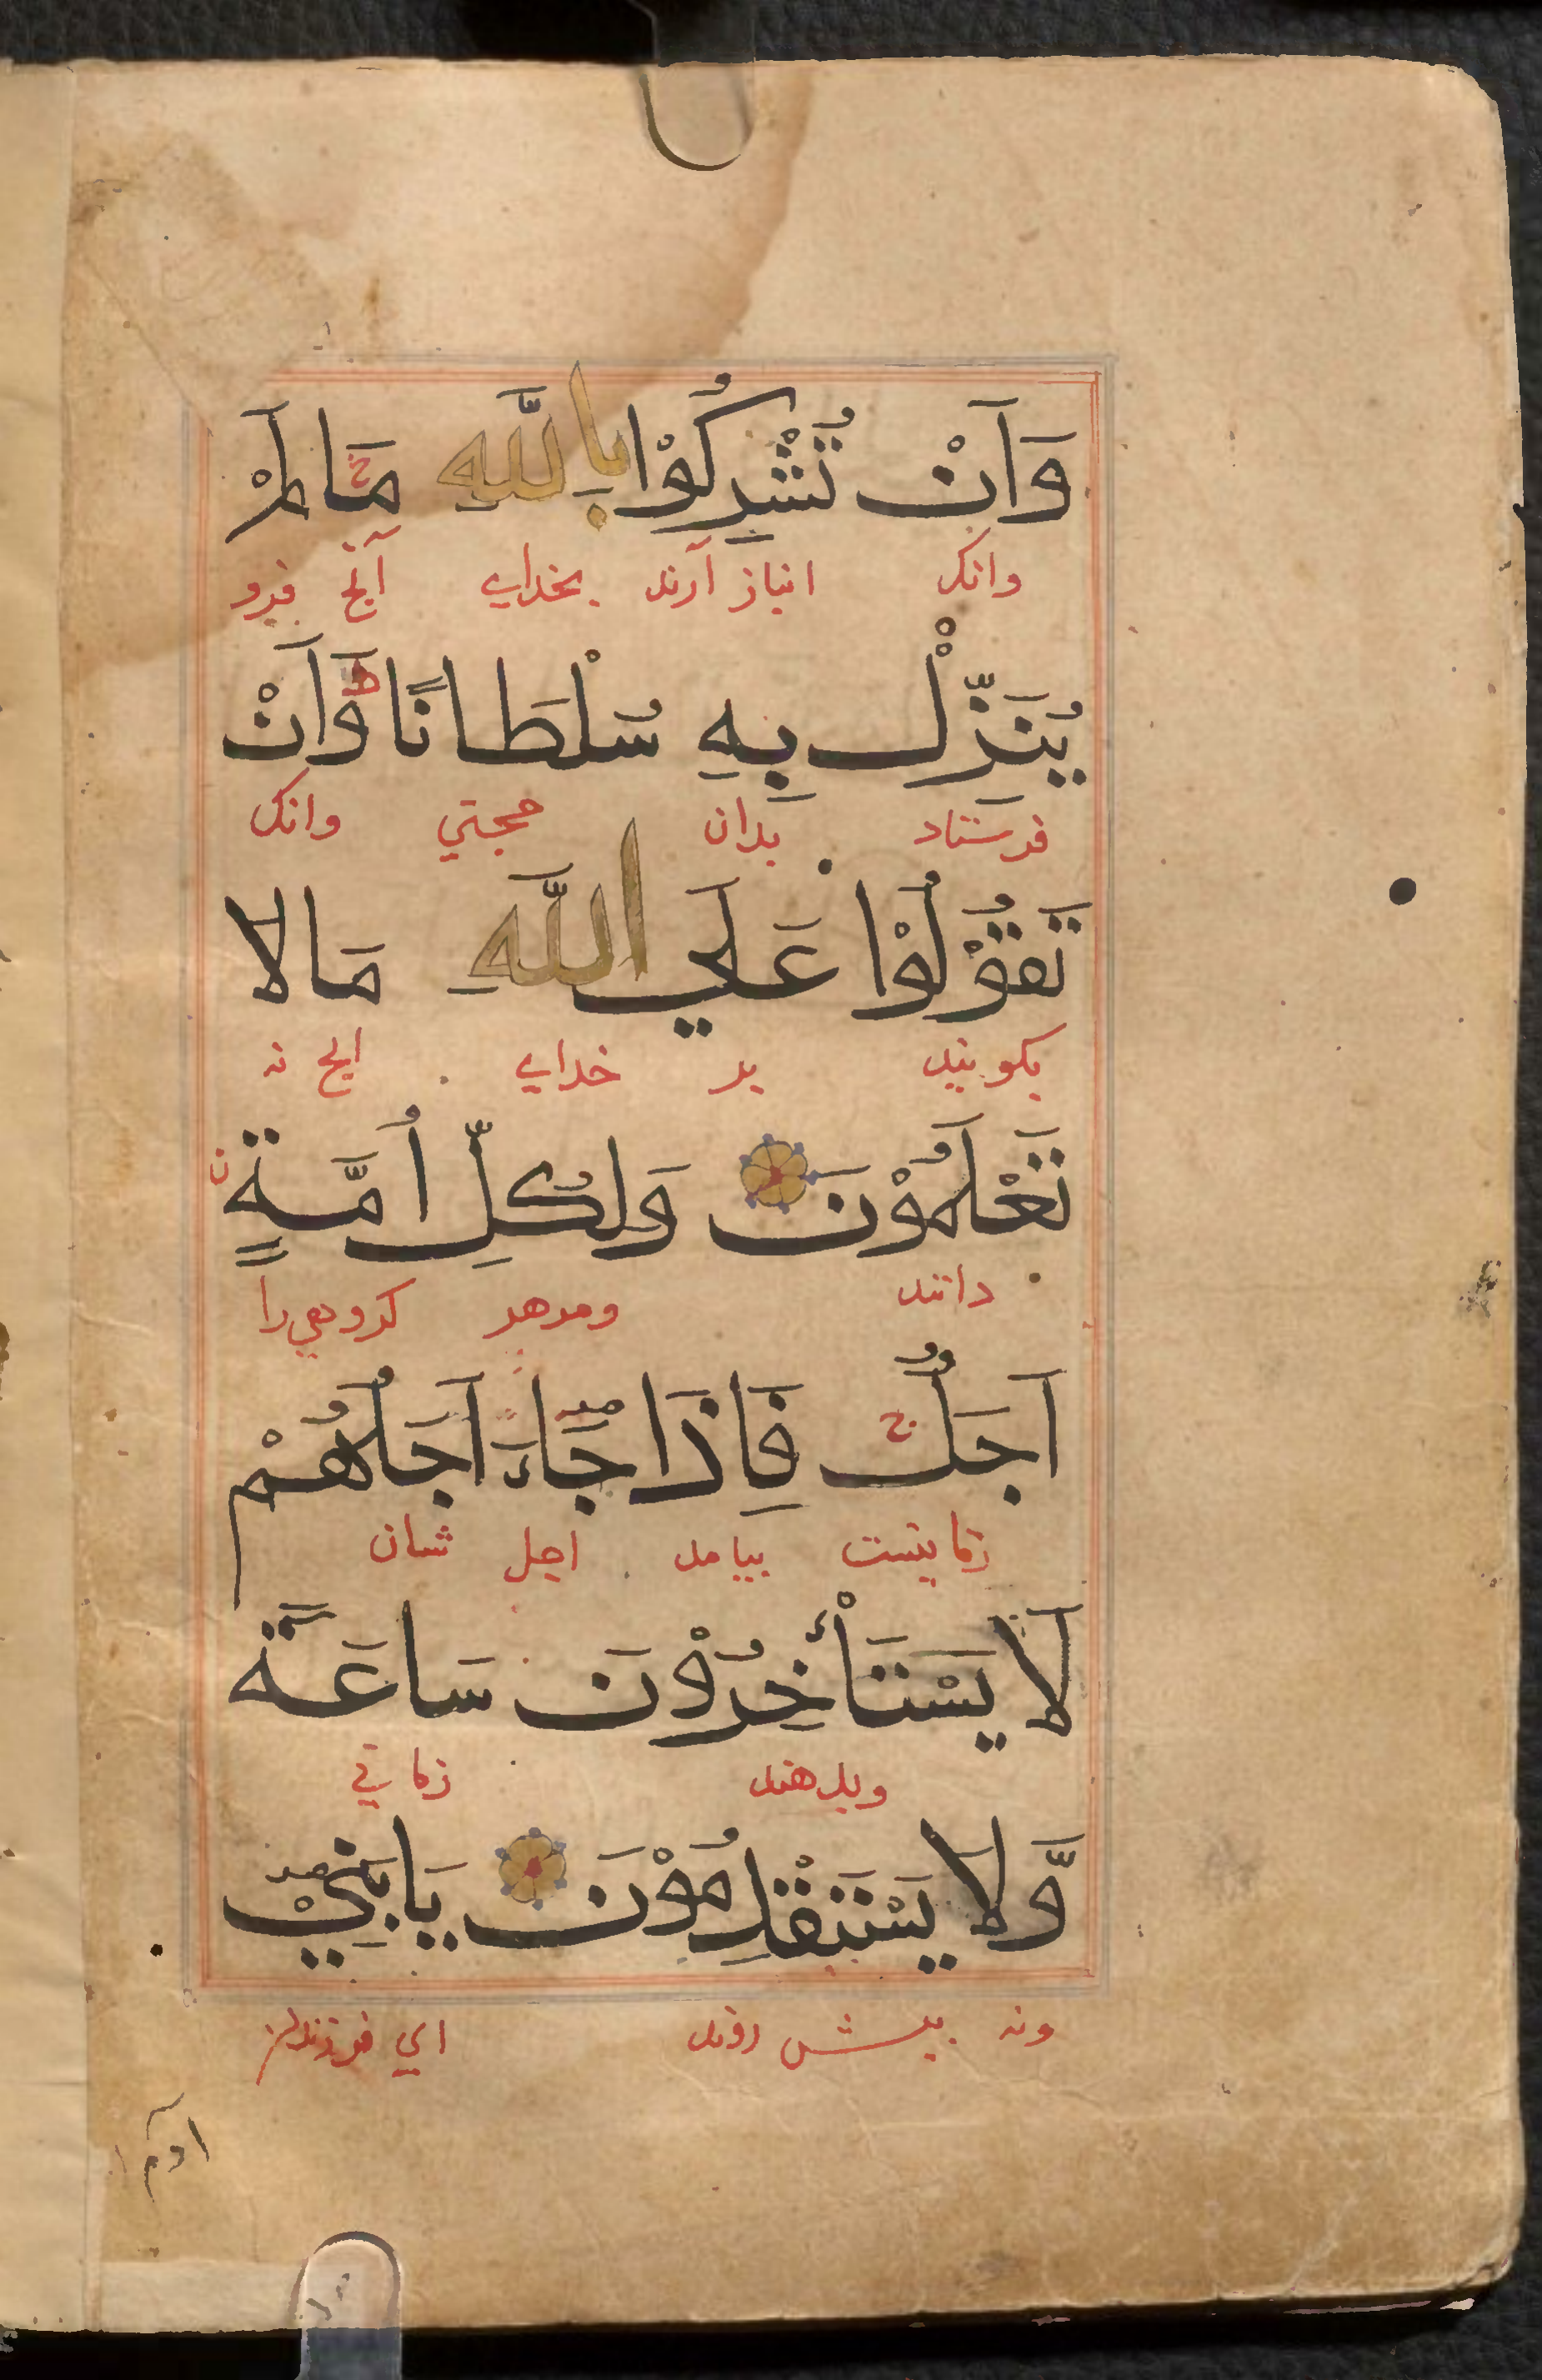 وَاَنْ تُشْرِكُوْا بِاللّٰهِ مَا لَمْ
وانک انباز آرند بخدای آنچ فرو
يُنَزِّلْ بِهِ سُلْطَانًا وَّاَنْ
فرستاد بدان حجتي وانک
تَقُوْلُوْا عَلَي اللّٰهِ مَا لَا
بکویید بر خدای انچ نه
تَعْلَمُوْنَ وَلِكُلِّ اُمَّةٍ
دانند ومرهر کروهي را
اَجَلٌ فَاِذَا جَاءَ اَجَلُهُمْ
زمانیست بیامد اجل شان
لَا يَسْتَأْخِرُوْنَ سَاعَةً
زماني
وَّلَا يَسْتَقْدِمُوْنَ يَا بَنِيْ
ونه پیش روند اي فرزندان
اٰدم